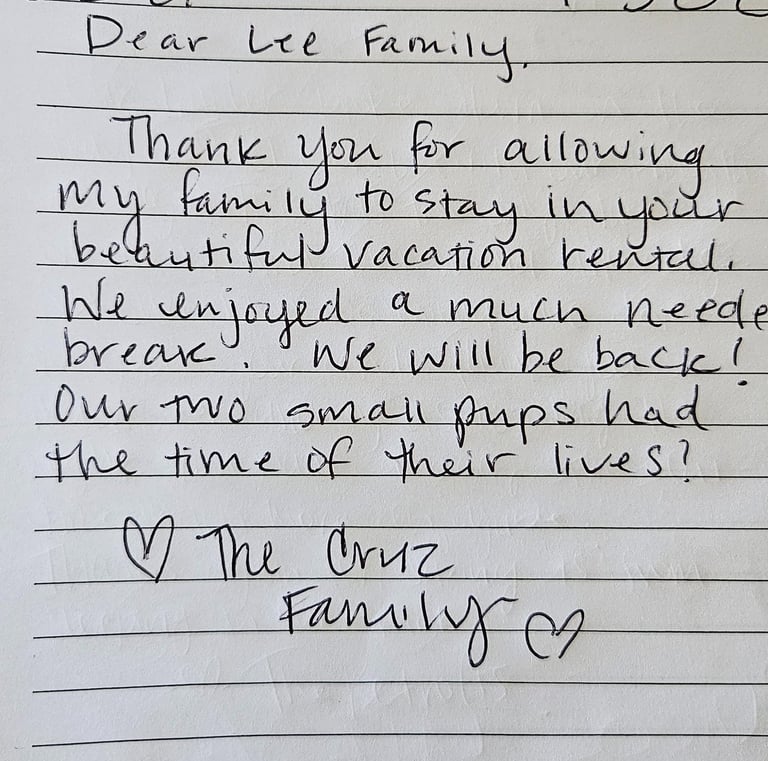 Dear Lee Family,
Thank you for allowing
my family to stay in your
beautiful vacation rental.
We enjoyed a much neede
break. We will be back!
Our two small pups had
the time of their lives?
♡ The Cruz
Family ♡